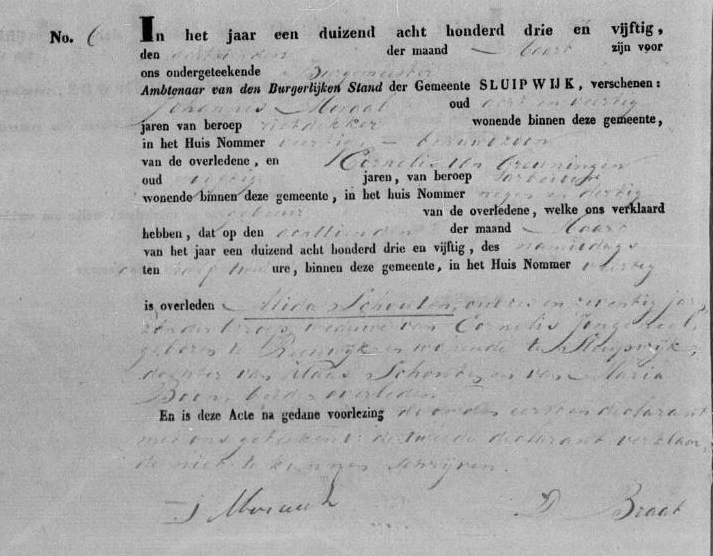 No. 6 In het jaar een duizend acht honderd drie en vijftig,
den der maand Maart zijn voor
ons ondergeteekende Burgemeester
Ambtenaar van den Burgerlijken Stand der Gemeente SLUIPWIJK, verschenen:
Johannes Moraal oud acht en veertig
jaren van beroep rietdekker wonende binnen deze gemeente,
in het Huis Nommer veertig
van de overledene, en Kornelis
oud jaren, van beroep arbeider
wonende binnen deze gemeente, in het huis Nommer negen en dertig
gebuur van de overledene, welke ons verklaard
hebben, dat op den achttienden der maand Maart
van het jaar een duizend acht honderd drie en vijftig, des namiddags
ten half ure, binnen deze gemeente, in het Huis Nommer veertig
is overleden Alida Schouten, oud zes en zeventig jaren
zonder beroep, weduwe van Cornelis
geboren te Reeuwijk en wonende te Sluipwijk,
dochter van Klaas Schouten en van Maria
Boon, beiden overleden
En is deze Acte na gedane voorlezing door den eersten declarant
met ons geteekend: de tweede declarant verklaar
de niet te kunnen schrijven.
J Moraal D Braat